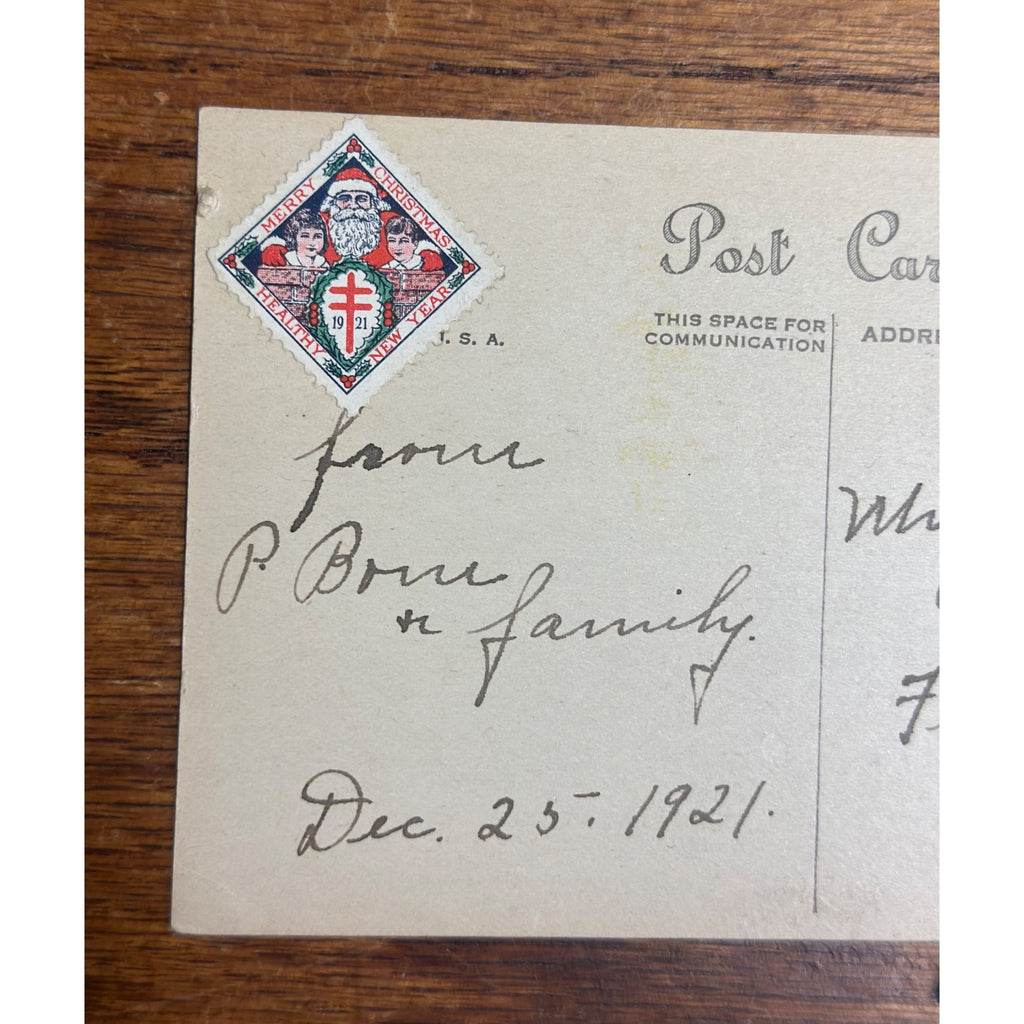 MERRY CHRISTMAS
HEALTHY NEW YEAR
19 21
Post Car
S. A.
THIS SPACE FOR
COMMUNICATION
ADDRE
from
P. Bone
& family.
Dec. 25. 1921.